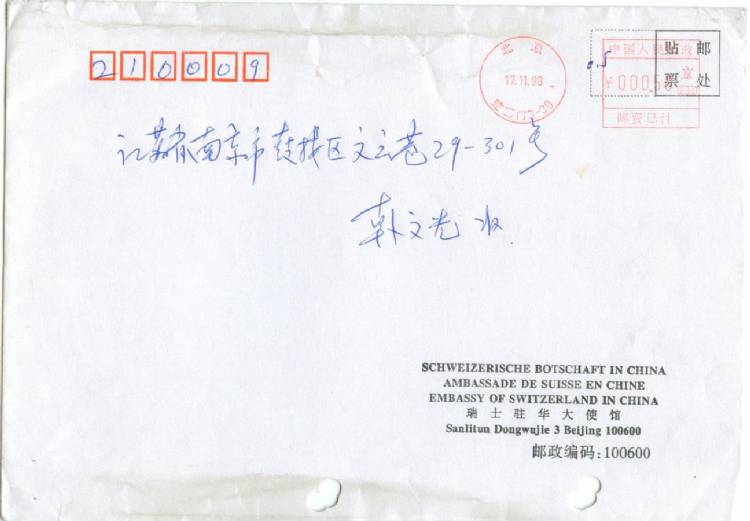 210009
贴 邮
票 处
中国人民邮政
京
¥0005
邮资已付
北京
17.11.93
江苏省南京市鼓楼区文云巷29-301号
韩文光 收
SCHWEIZERISCHE BOTSCHAFT IN CHINA
AMBASSADE DE SUISSE EN CHINE
EMBASSY OF SWITZERLAND IN CHINA
瑞士驻华大使馆
Sanlitun Dongwujie 3 Beijing 100600
邮政编码:100600